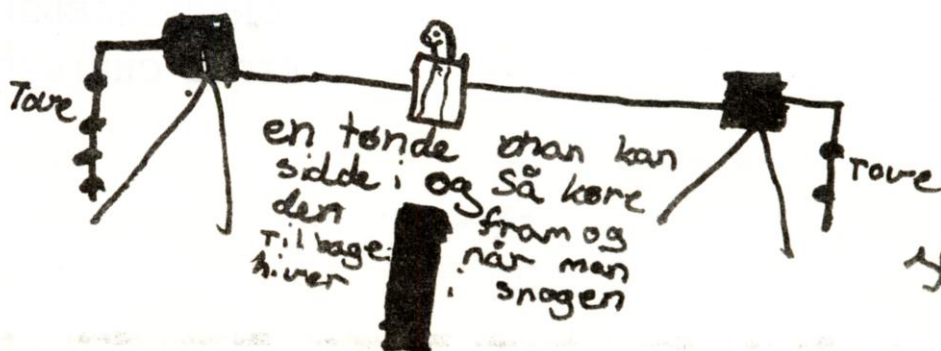 Tove
en tønde man kan
sidde i og så køre
den fram og
Tilbage når man
hiver i snogen
Tove